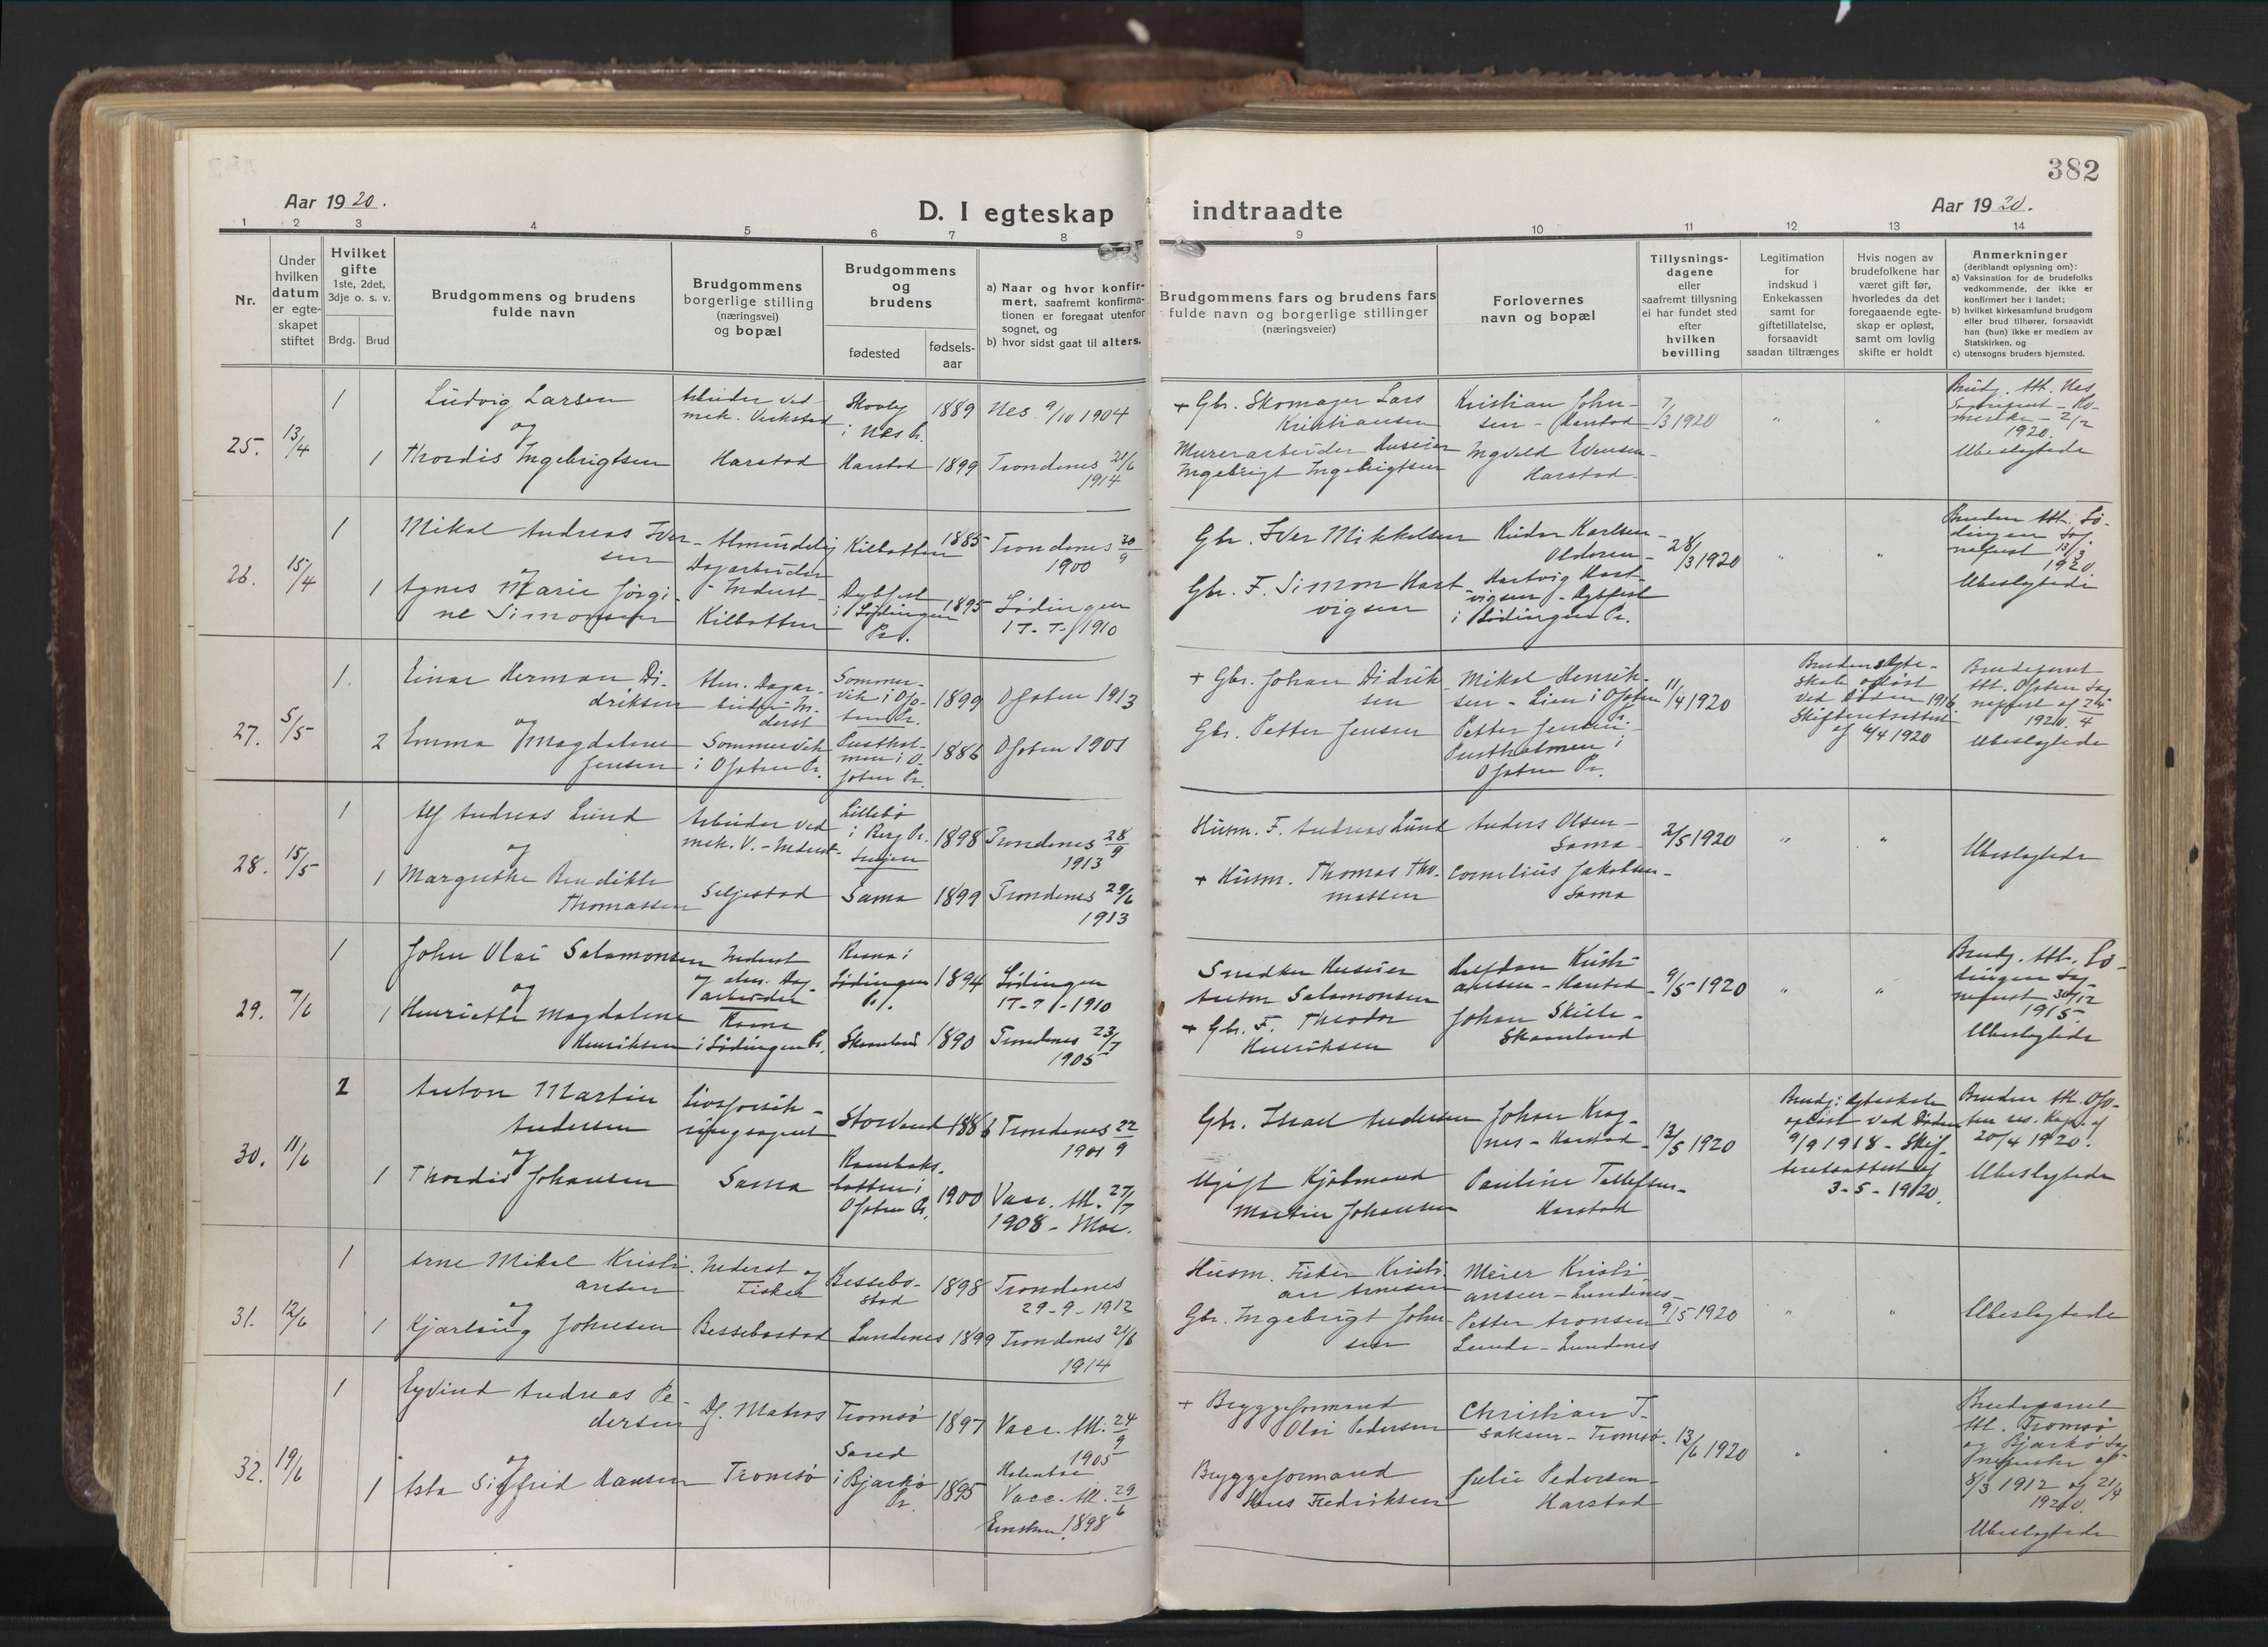 382
Aar 1920.
D. I egteskap indtraadte
Aar 1920.
1 2 3 4 5 6 7 8 9 10 11 12 13 14
Nr.
Under
hvilken
datum
er egte-
skapet
stiftet
Hvilket
gifte
1ste, 2det,
3dje o. s. v.
Brdg. Brud
Brudgommens og brudens
fulde navn
Brudgommens
borgerlige stilling
(næringsvei)
og bopæl
Brudgommens
og
brudens
fødested
fødsels-
aar
a) Naar og hvor konfir-
mert, saafremt konfirma-
tionen er foregaat utenfor
sognet, og
b) hvor sidst gaat til alters.
Brudgommens fars og brudens fars
fulde navn og borgerlige stillinger
(næringsveier)
Forlovernes
navn og bopæl
Tillysnings-
dagene
eller
saafremt tillysning
ei har fundet sted
efter
hvilken
bevilling
Legitimation
for
indskud i
Enkekassen
samt for
giftetillatelse,
forsaavidt
saadan tiltrænges
Hvis nogen av
brudefolkene har
været gift før,
hvorledes da det
foregaaende egte-
skap er opløst,
samt om lovlig
skifte er holdt
Anmerkninger
(deriblandt oplysning om):
a) Vaksination for de brudefolks
vedkommende, der ikke er
konfirmert her i landet;
b) hvilket kirkesamfund brudgom
eller brud tilhører, forsaavidt
han (hun) ikke er medlem av
Statskirken, og
c) utensogns bruders hjemsted.
25. 13/4
1
Ludvig Larsen
og
1 Thordis Ingebrigtsen
Arbeider ved
mek. Verksted
Harstad
Skovly
i Nes Pr.
1889
Nes 9/10 1904
Harstad 1899
Trondenes 21/6
1914
+ Gbr. Skomager Lars
Kristiansen
Murerarbeider Huseier
Ingebrigt Ingebrigtsen
Kristian John-
sen - Harstad
Ingvald Evensen -
Harstad
7/3 1920
" "
Brudg. att. Nes
2/2
1920.
Ubeslegtede
26. 15/4
1
Mikal Andreas Iver-
sen
og
1 Agnes Marie Jørgi-
ne Simonsen
Almindelig
Dagarbeider
- Inderst -
Kilbotten
Kilbotten 1885
Trondenes 20/9
1900
Dybfest
i Lødingen
Pr. 1895
Lødingen
17-7-1910
Gbr. Iver Mikkelsen
Gbr. F. Simon Hart-
vigsen
Peder Karlsen -
Olderen -
Hartvig Hart-
vigsen - Dybfest
i Lødingen Pr.
28/3 1920
" "
Bruden att. Lø-
dingen Sog-
nefrest 13/3
1920
Ubeslegtede
27. 5/5
1.
Einar Herman Di-
driksen
og
2 Emma Magdalene
Jensen
Alm. Dagar-
beider In-
derst
Sommervik
i Ofoten Pr.
Sommer-
vik i Ofo-
ten Pr.
1899
Ofoten 1913
Pusthol-
men i O-
foten Pr.
1886
Ofoten 1901
+ Gbr. Johan Didrik-
sen
Gbr. Petter Jensen
Mikal Henrik-
sen - Lien i Ofoten
Pr.
Petter Jensen -
Pustholmen i
Ofoten Pr.
11/4 1920
Brudens Egte-
skab opløst
ved Døden 1916
Skifteretsattest
af 6/4 1920
Brudeparet
att. Ofoten Sog-
nefrest af 24/4
1920.
Ubeslegtede
28. 15/5
1
Alf Andreas Lund
og
1 Margrethe Benedikte
Thomassen
Arbeider ved
mek. V. - Inderst-
Seljestad
Lillebø
i Berg Pr.
Senjen
1898
Trondenes 28/9
1913
Sama 1899
Trondenes 29/6
1913
Husm. F. Andreas Lund
+ Husm. Thomas Tho-
massen
Anders Olsen -
Sama
Cornelius Jakobsen -
Sama
2/5 1920
" "
Ubeslegtede
29. 7/6
1
John Olai Salamonsen
og
1 Henriette Magdalene
Henriksen
Inderst
og alm. Dag-
arbeider
i Lødingen Pr.
Lødingen
Pr.
1894
Lødingen
17-7-1910
Skaanland 1890
Trondenes 23/7
1905
Snedker Huseier
Anton Salamonsen
+ Gbr. F. Theodor
Henriksen
Halfdan Kristi-
ansen - Harstad
Johan Skille -
Skaanland
9/5 1920
" "
Brudg. att. Lø-
dingen Sog-
nefrest 30/12
1915.
Ubeslegtede
30. 11/6
2
Anton Martin
Andersen
og
1 Thordis Johansen
Livsforsik-
ringsagent
Sama
Storvand 1886
Trondenes 22/9
1901
Ofoten Pr. 1900
Vacc. att. 27/7
1908 - Moe.
Gbr. Israel Andersen
Ugift Kjøbmand
Martin Johansen
Johan Krog-
nes - Harstad -
Pauline Tollefsen -
Harstad
13/5 1920
Brudg. Egteskab
opløst ved Døden
9/9 1918 - Skif-
teretsattest af
3-5-1920.
Bruden att. Ofo-
ten res. Kap. af
20/4 1920.
Ubeslegtede
31. 12/6
1
Arne Mikal Kristi-
ansen
og
1 Kjærlaug Johnsen
Inderst og
Fisker
Bessebostad
Bessebo-
stad
1898
Trondenes
29-9-1912
Lundenes 1899
Trondenes 21/6
1914
Husm. Fisker Kristi-
an Arnesen
Gbr. Ingebrigt John-
sen
Meier Kristi-
ansen - Lundenes -
Petter Aronsen
Lunde - Lundenes
9/5 1920
" "
Ubeslegtede
32. 19/6
1
Eyvind Andreas Pe-
dersen
og
1 Asta Sigfrid Hansen
Df. Matros
Tromsø
Tromsø 1897
Vacc. att. 24/9
1905
Sand
i Bjarkø
Pr. 1895
Vacc. att. 29/6
1898
+ Bryggeformand
Olai Pedersen
Bryggeformand
Hans Fredriksen
Christian I-
saksen - Tromsø -
Julie Pedersen -
Harstad
13/6 1920
" "
Brudeparet
att. Tromsø
og Bjarkø Sog-
nefrester af
8/3 1912 og 21/4
1920.
Ubeslegtede